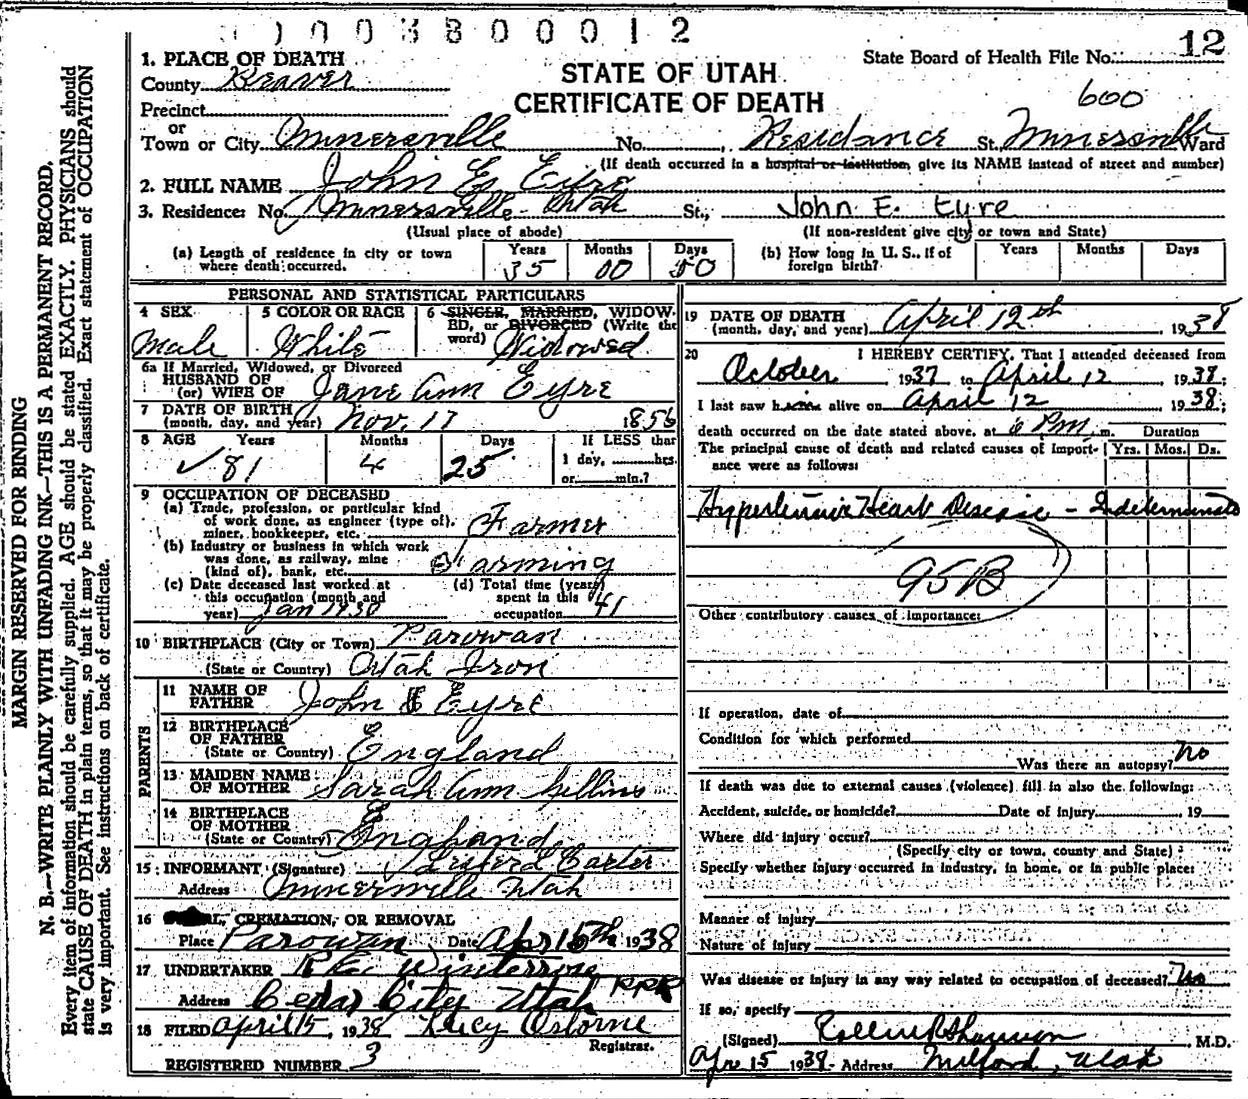 1003800012
12
1. PLACE OF DEATH
State Board of Health File No.
County Beaver
STATE OF UTAH
CERTIFICATE OF DEATH
600
Precinct
or
Town or City Minnersville No. Residance St. Minnersville Ward
(If death occurred in a hospital or institution, give its NAME instead of street and number)
2. FULL NAME John E Eyre
3. Residence: No. Minnersville Utah St., John E. Eyre
(Usual place of abode) (If non-resident give city or town and State)
(a) Length of residence in city or town where death occurred. Years 35 Months 00 Days
(b) How long in U. S., if of foreign birth? Years Months Days
PERSONAL AND STATISTICAL PARTICULARS
4 SEX Male
5 COLOR OR RACE White
6 SINGLE, MARRIED, WIDOWED, or DIVORCED (Write the word) Widowed
6a If Married, Widowed, or Divorced
HUSBAND OF
(or) WIFE OF Jane Ann Eyre
7 DATE OF BIRTH
(month, day, and year) Nov. 17 1856
8 AGE Years 81 Months 4 Days 25 If LESS than 1 day, hrs. or min.?
9 OCCUPATION OF DECEASED
(a) Trade, profession, or particular kind
of work done, as engineer (type of),
miner, bookkeeper, etc. Farmer
(b) Industry or business in which work
was done, as railway, mine
(kind of), bank, etc. Farming
(c) Date deceased last worked at
this occupation (month and
year) Jan 1930
(d) Total time (years)
spent in this
occupation 41
10 BIRTHPLACE (City or Town) Parowan
(State or Country) Utah Iron
PARENTS
11 NAME OF
FATHER John E Eyre
12 BIRTHPLACE
OF FATHER
(State or Country) England
13 MAIDEN NAME
OF MOTHER Sarah Ann Gillins
14 BIRTHPLACE
OF MOTHER
(State or Country) England
15 INFORMANT (Signature) Carter
Address Minnersville Utah
16 CREMATION, OR REMOVAL
Place Parowan Date Apr 15th 1938
17 UNDERTAKER
Address Cedar City Utah
18 FILED April 15, 1938 Lucy Osborne
Registrar.
REGISTERED NUMBER 3
19 DATE OF DEATH
(month, day, and year) April 12th 1938
20 I HEREBY CERTIFY, That I attended deceased from
October 1937 to April 12, 1938;
I last saw him alive on April 12 1938;
death occurred on the date stated above, at 6 P.M. m. Duration
The principal cause of death and related causes of importance were as follows: Yrs. Mos. Ds.
Hypertensive Heart Disease - Indeterminate
95B
Other contributory causes of importance:
If operation, date of
Condition for which performed
Was there an autopsy? No
If death was due to external causes (violence) fill in also the following:
Accident, suicide, or homicide? Date of injury , 19
Where did injury occur?
(Specify city or town, county and State)
Specify whether injury occurred in industry, in home, or in public place:
Manner of injury
Nature of injury
Was disease or injury in any way related to occupation of deceased? No
If so, specify
(Signed) M.D.
Apr 15 1938 Address Milford, Utah
MARGIN RESERVED FOR BINDING
N. B.—WRITE PLAINLY WITH UNFADING INK—THIS IS A PERMANENT RECORD.
Every item of information should be carefully supplied. AGE should be stated EXACTLY. PHYSICIANS should
state CAUSE OF DEATH in plain terms, so that it may be properly classified. Exact statement of OCCUPATION
is very important. See instructions on back of certificate.